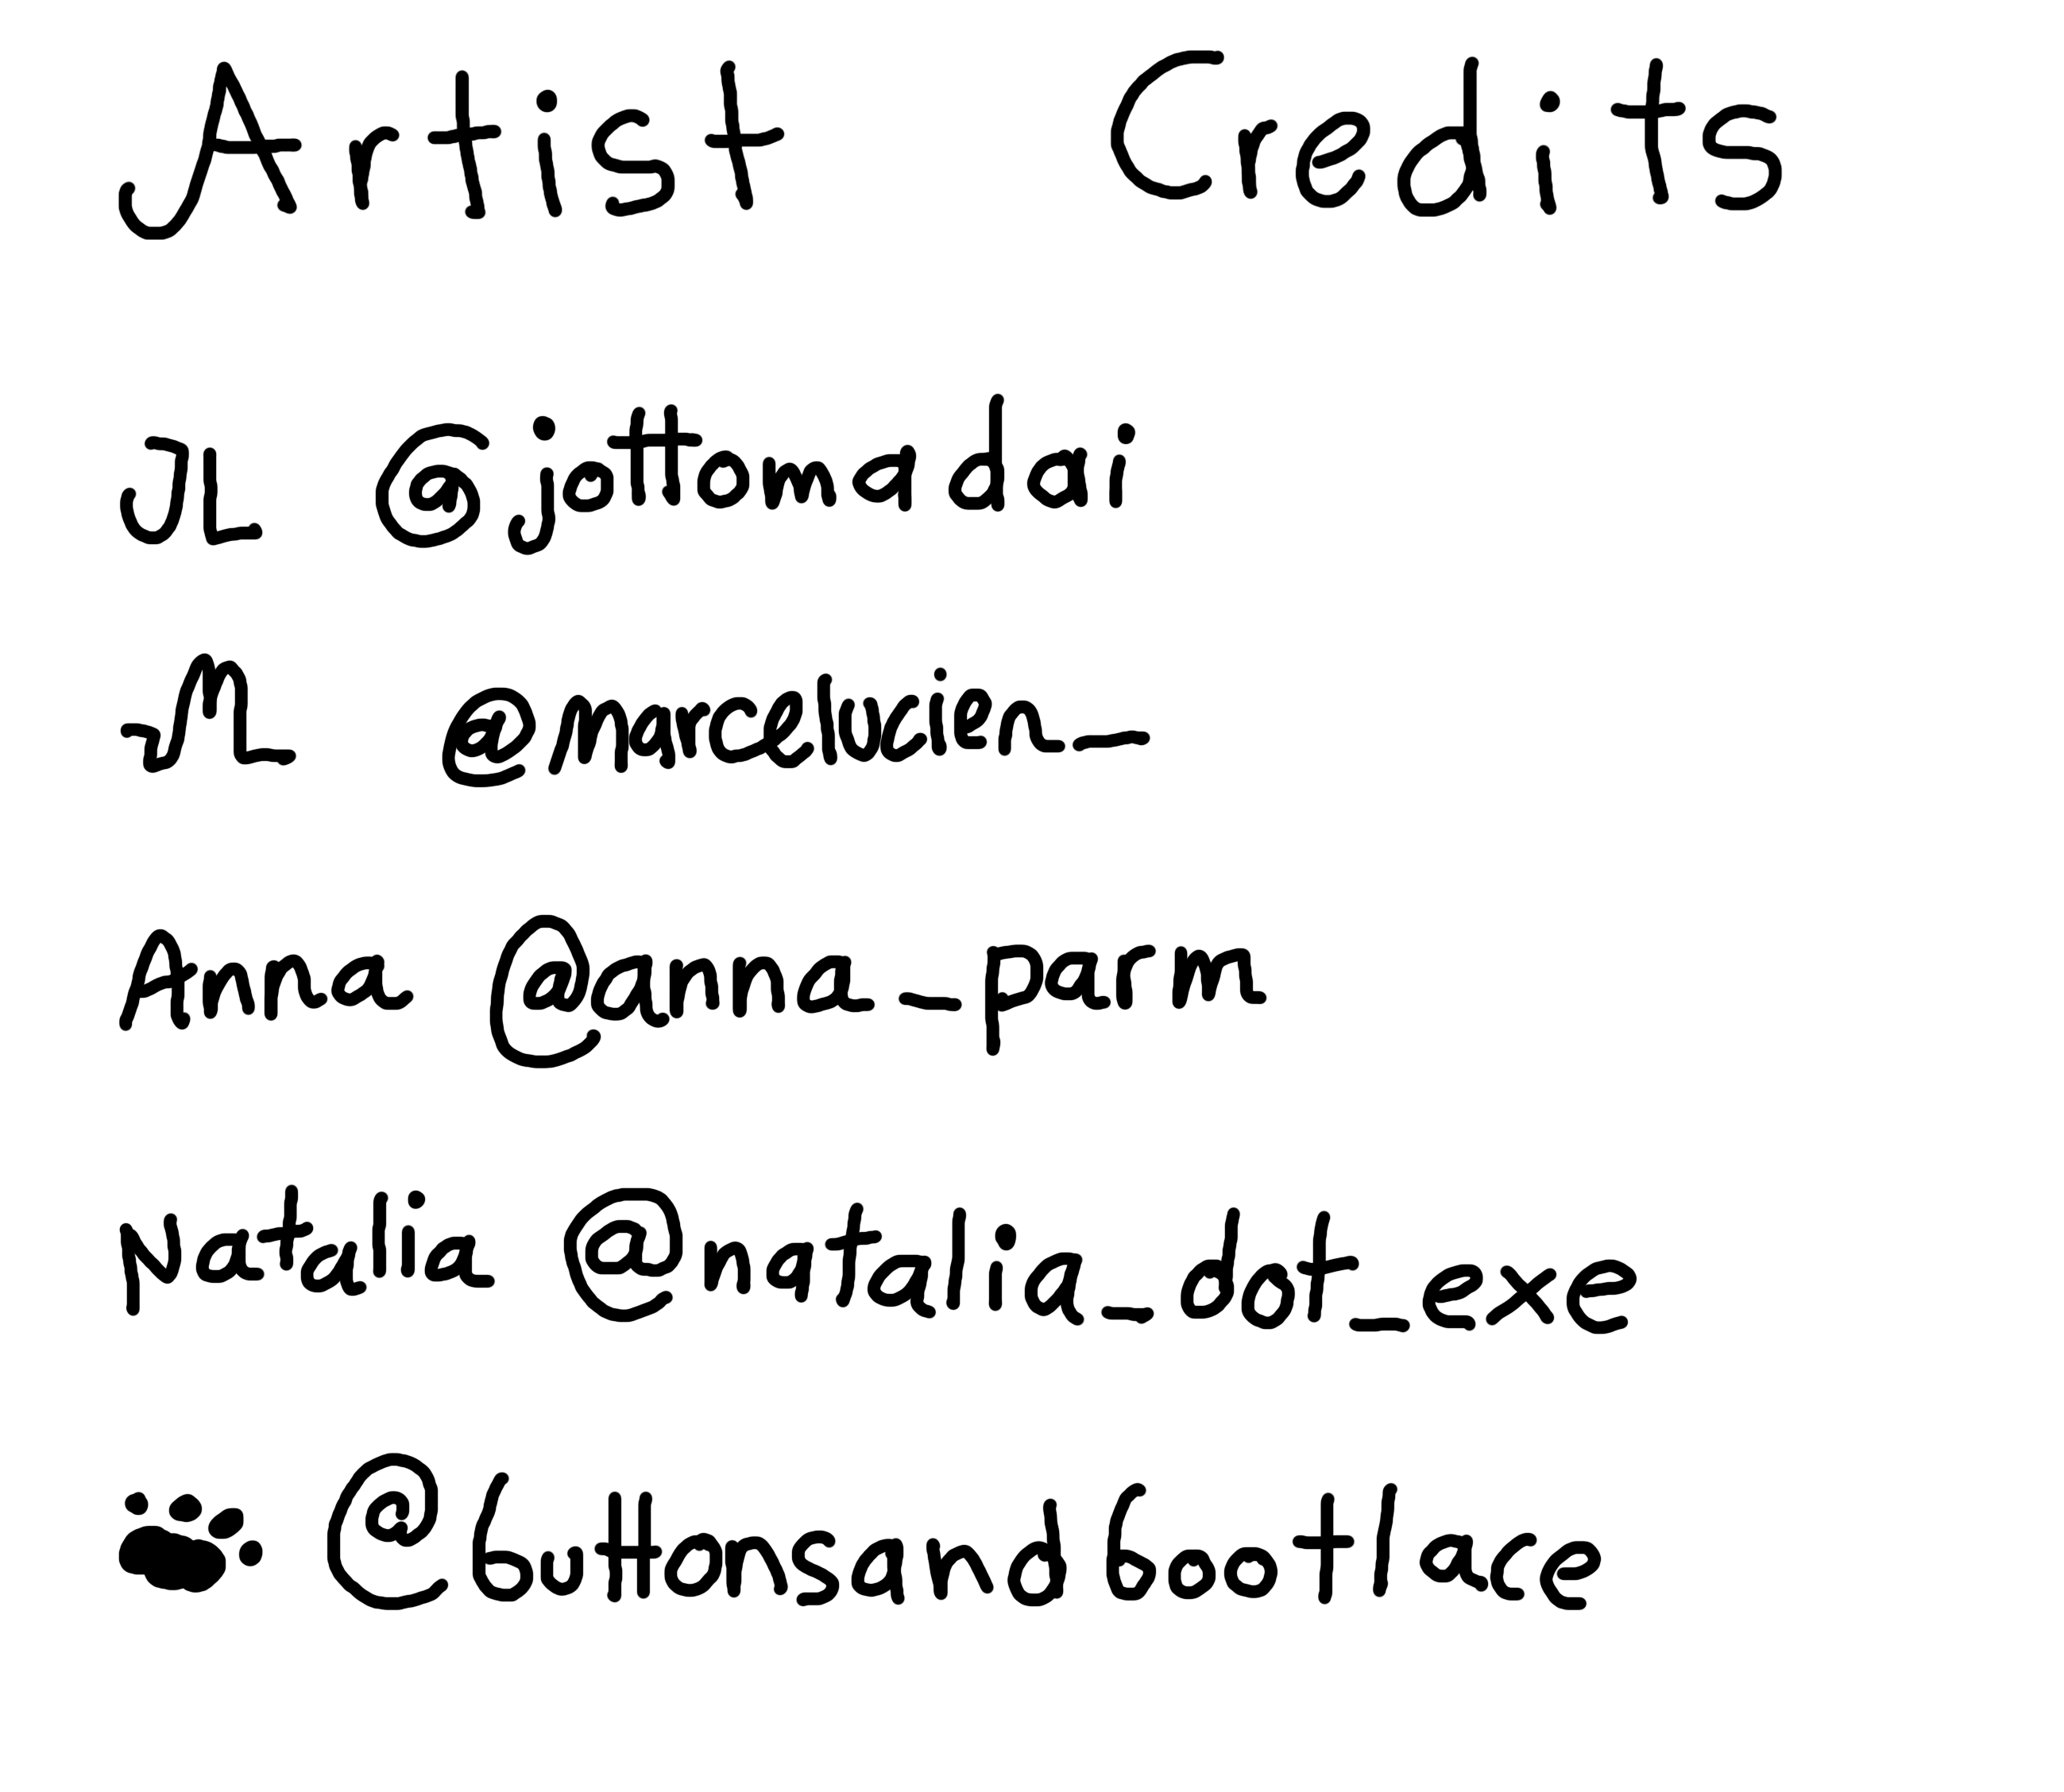 Artist Credits
JL @jottomadai
M @marcelucien_
Anna @anna_parm
Natalia @natalia_dot_exe
@buttonsandbootlace